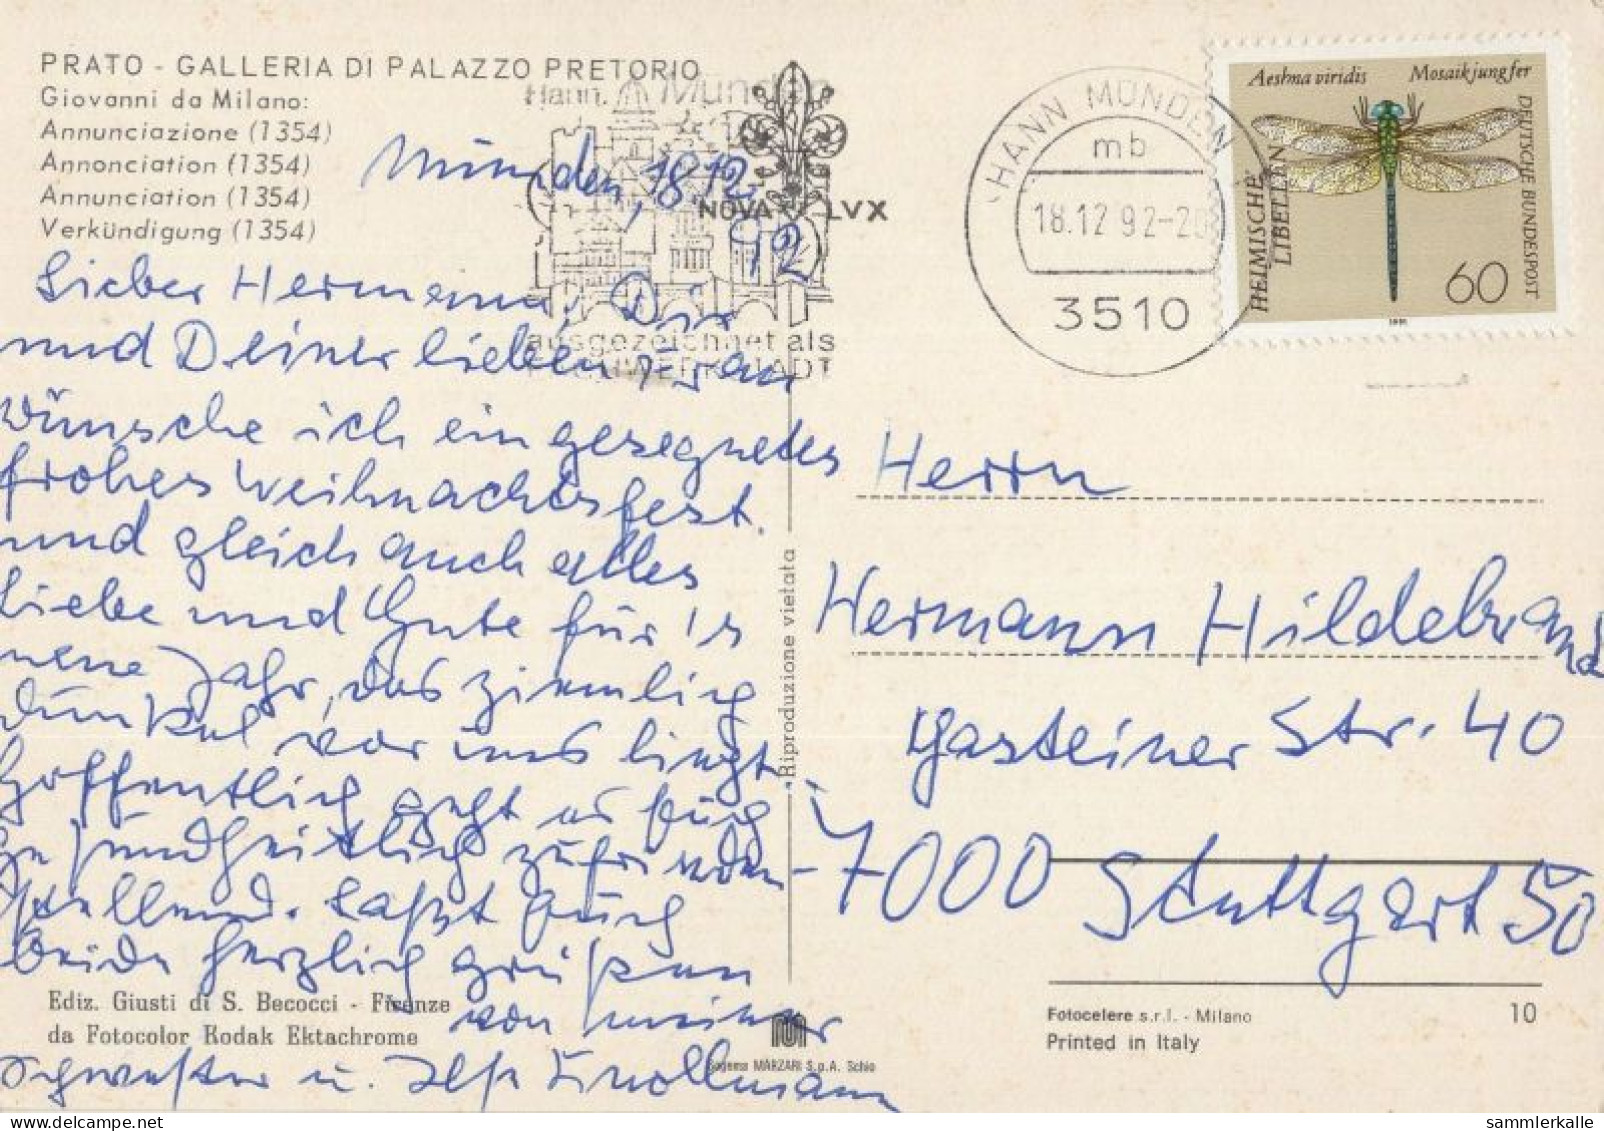 PRATO - GALLERIA DI PALAZZO PRETORIO
Giovanni da Milano:
Annunciazione (1354)
Annonciation (1354)
Annunciation (1354)
Verkündigung (1354)
Hann. Münden
NOVA LVX
ausgezeichnet als
FACHWERKSTADT
HANN MÜNDEN
mb
18.12.92-20
3510
Aeshna viridis Mosaikjungfer
HEIMISCHE
LIBELLEN
DEUTSCHE BUNDESPOST
60
1991
Münden, 18.12.
92
Lieber Hermann, Dir
und Deiner lieben Frau
wünsche ich ein gesegnetes
frohes Weihnachtsfest.
und gleich auch alles
Liebe und Gute für's
neue Jahr, das ziemlich
dunkel vor uns liegt.
Hoffentlich geht es Euch
gesundheitlich zufrieden-
stellend. Laßt Euch
beide herzlich grüßen
von meiner
Schwester u. Ilse Knollmann
Herrn
Hermann Hildebrand
Gasteiner Str. 40
7000 Stuttgart 50
Riproduzione vietata
Ediz. Giusti di S. Becocci - Firenze
da Fotocolor Kodak Ektachrome
Sagema MARZARI S.p.A. Schio
Fotocelere s.r.l. - Milano
Printed in Italy
10
sammlerkalle